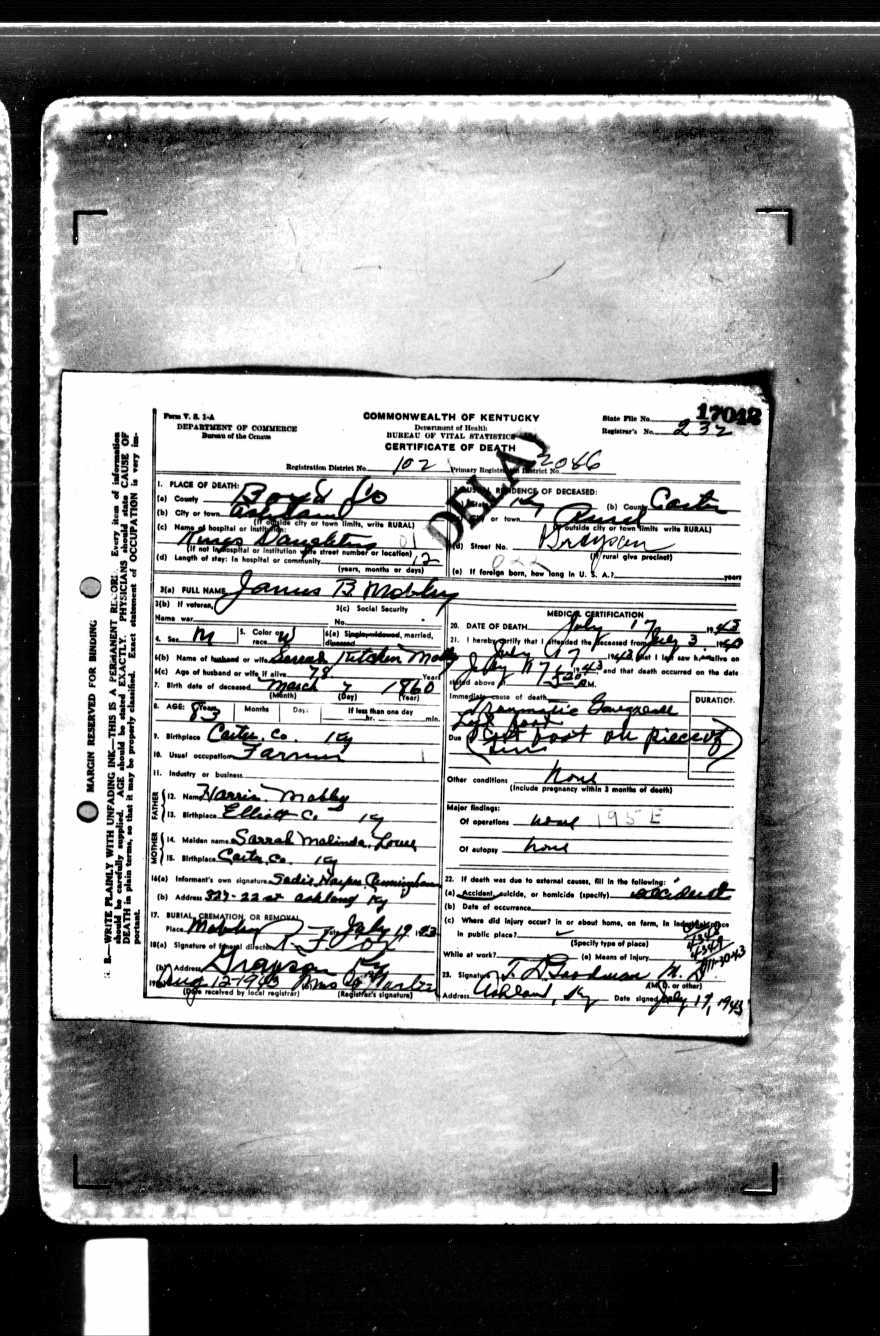 Form V. S. 1-A
DEPARTMENT OF COMMERCE
Bureau of the Census
COMMONWEALTH OF KENTUCKY
Department of Health
BUREAU OF VITAL STATISTICS
CERTIFICATE OF DEATH
State File No. 17042
Registrar's No. 232
Registration District No. 102 Primary Registration District No. 2086
DELAY
MARGIN RESERVED FOR BINDING
WRITE PLAINLY WITH UNFADING INK—THIS IS A PERMANENT RECORD. Every item of information
should be carefully supplied. AGE should be stated EXACTLY. PHYSICIANS should state CAUSE OF
DEATH in plain terms, so that it may be properly classified. Exact statement of OCCUPATION is very im-
portant.
1. PLACE OF DEATH:
(a) County Boyd Co
(b) City or town Ashland
(If outside city or town limits, write RURAL)
(c) Name of hospital or institution:
Kings Daughters 01
(If not in hospital or institution write street number or location)
(d) Length of stay: In hospital or community 12
(years, months or days)
2. USUAL RESIDENCE OF DECEASED:
(a) State Ky (b) County Carter
or town Rural
(If outside city or town limits write RURAL)
(d) Street No. Grayson
(If rural give precinct)
(e) If foreign born, how long in U. S. A.? years
3(a) FULL NAME James B. Mobley
3(b) If veteran,
Name war
3(c) Social Security
No.
4. Sex M 5. Color or race W 6(a) Single, widowed, married, divorced
6(b) Name of husband or wife Sarrah Kitchen Mobley
6(c) Age of husband or wife if alive 78 Years
7. Birth date of deceased March 7 1860
(Month) (Day) (Year)
8. AGE: Years 83 Months Days If less than one day
hr. min.
9. Birthplace Carter. Co. Ky
10. Usual occupation Farmer
11. Industry or business
FATHER
12. Name Harris Mobley
13. Birthplace Elliott C. Ky
MOTHER
14. Maiden name Sarrah Malinda
15. Birthplace Carter, Co. Ky
16(a) Informant's own signature Sadie Harper Cunningham
(b) Address 329-22 st Ashland Ky
17. BURIAL, CREMATION, OR REMOVAL
Place Mobley Date July 19 1943
18(a) Signature of funeral director
(b) Address Grayson Ky
Aug. 12-1943 Mrs
(Date received by local registrar) (Registrar's signature)
MEDICAL CERTIFICATION
20. DATE OF DEATH July 17 1943
21. I hereby certify that I attended the deceased from July 3 1940
July 17 1943 that I last saw him alive on
July 17 1943 and that death occurred on the date
stated above M.
Immediate cause of death
DURATION
Traumatic Gangrene
Left foot
Due Cut foot on piece of
tin
Other conditions None
(Include pregnancy within 3 months of death)
Major findings:
Of operations none 195 E
Of autopsy none
22. If death was due to external causes, fill in the following:
(a) Accident, suicide, or homicide (specify) accident
(b) Date of occurrence
(c) Where did injury occur? in or about home, on farm, in industrial place
in public place?
(Specify type of place)
While at work? (e) Means of injury
23. Signature Goodman M. D.
(M. D. or other)
Address Ashland, Ky Date signed July 19, 1943